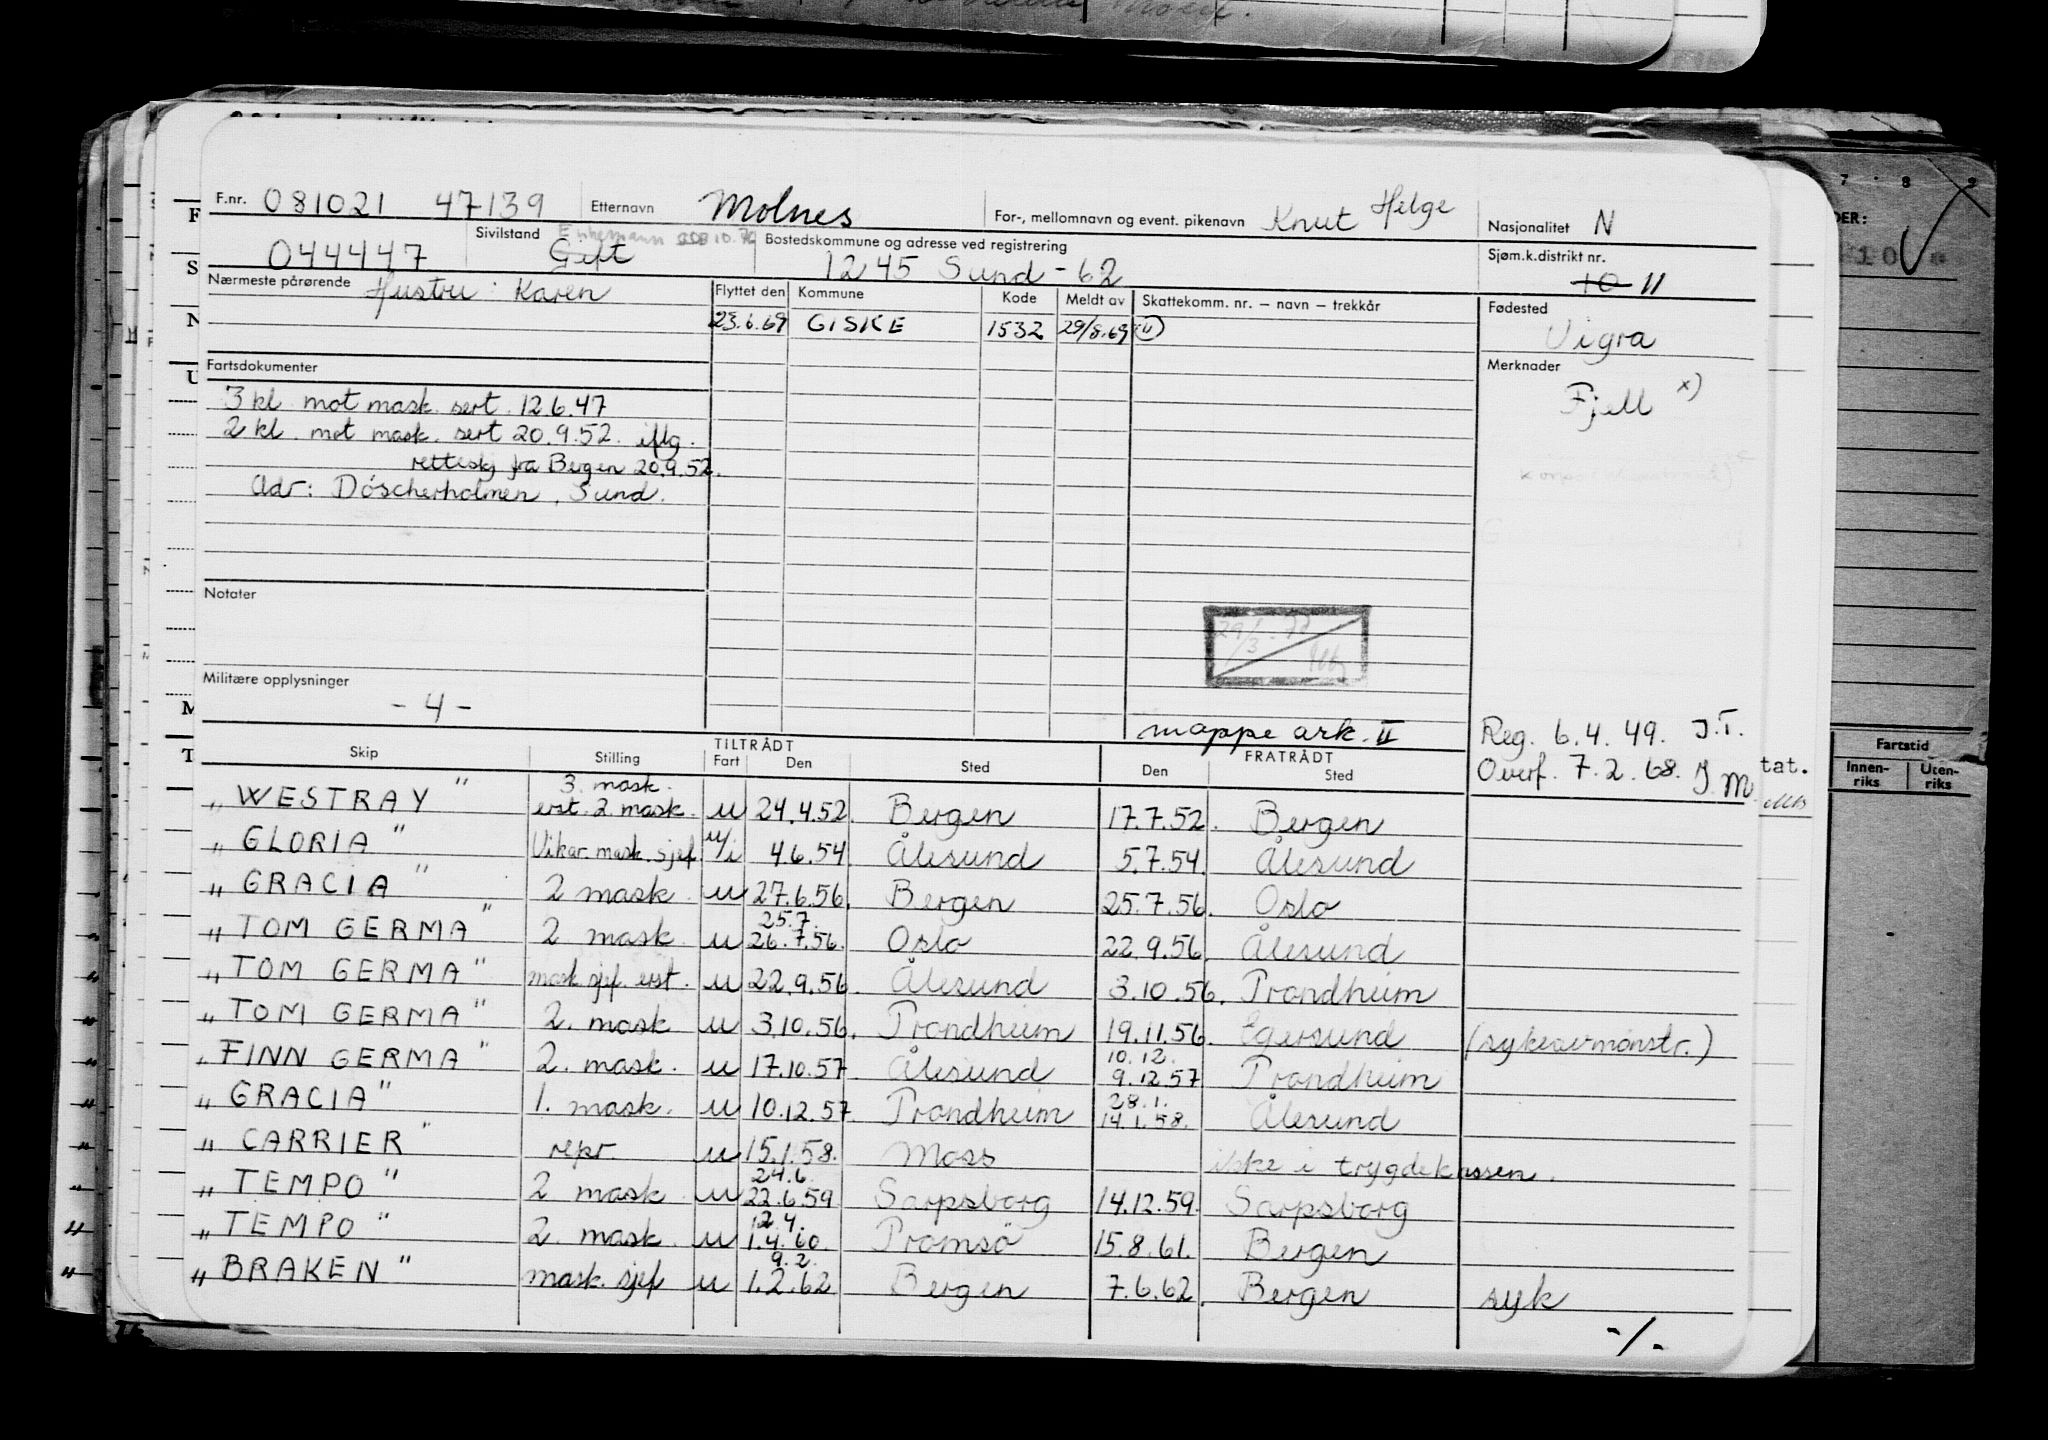 F.nr. 081021 47139 Etternavn Molnes For-, mellomnavn og event. pikenavn Knut Helge Nasjonalitet N
044447 Sivilstand Gift Bostedskommune og adresse ved registrering 1245 Sund - 62 Sjøm.k.distrikt nr. 10 11
Nærmeste pårørende Hustru: Karen Flyttet den Kommune Kode Meldt av Skattekomm. nr. – navn – trekkår Fødested
23.6.69 GISKE 1532 29/8.69 Vigra
Fartsdokumenter Merknader
3 kl mot mask. sert. 12.6.47 Fjell x)
2 kl. mot mask. sert 20.9.52. iflg.
retteskj fra Bergen 20.9.52.
Adr: Döscherholmen, Sund.
Notater
Militære opplysninger
- 4 -
mappe ark. II Reg. 6.4.49. J.T.
Overf. 7.2.68. J.M.
Skip Stilling TILTRÅDT Fart Den Sted FRATRÅDT Den Sted
„ WESTRAY " 3. mask. erst. 2. mask. u 24.4.52. Bergen 17.7.52. Bergen
„ GLORIA " Vikar. mask. sjef u/i 4.6.54. Ålesund 5.7.54. Ålesund
„ GRACIA " 2 mask. u 27.6.56. Bergen 25.7.56. Oslo
„ TOM GERMA " 2 mask. u 25.7. 26.7.56. Oslo 22.9.56. Ålesund
„ TOM GERMA " mask sjef. erst. u 22.9.56. Ålesund 3.10.56. Trondheim
„ TOM GERMA " 2. mask u 3.10.56. Trondheim 19.11.56. Egersund (sykeavmønstr.)
„ FINN GERMA " 2. mask. u 17.10.57. Ålesund 10.12. 9.12.57 Trondheim
„ GRACIA " 1. mask. u 10.12.57. Trondheim 28.1. 14.1.58. Ålesund
„ CARRIER " repr u 15.1.58. Moss ikke i trygdekassen.
„ TEMPO " 2 mask u 24.6. 22.6.59 Sarpsborg 14.12.59. Sarpsborg
„ TEMPO " 2. mask. u 12.4. 1.4.60. Tromsö 15.8.61. Bergen
„ BRAKEN " mask. sjef u 9.2. 1.2.62 Bergen 7.6.62. Bergen syk
-/-
DER:
Fartstid
Innen-
riks
Uten-
riks
tat.